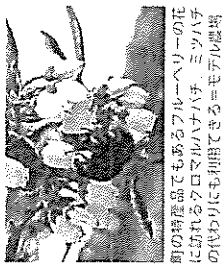 町の特産品でもあるブルーベリーの花
に訪れるクロマルハナバチ。ミツバチ
の代わりにも利用できる＝モデル農場